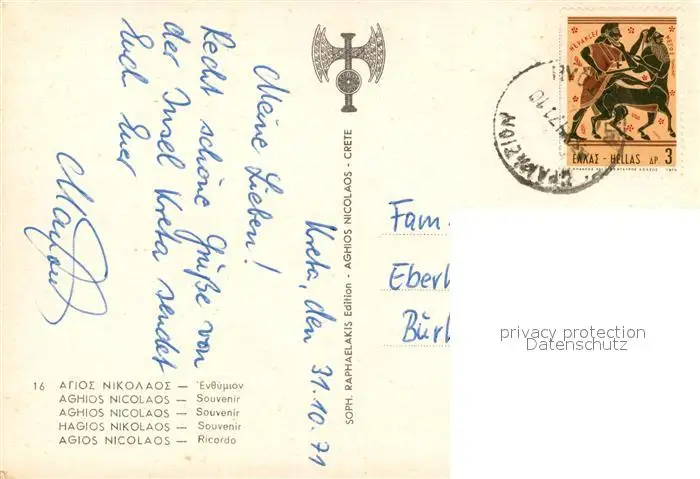 Kreta, den 31.10.71
Meine Lieben!
Recht schöne Grüße von
der Insel Kreta sendet
Euch Euer
16 ΑΓΙΟΣ ΝΙΚΟΛΑΟΣ — Ἐνθύμιον
AGHIOS NICOLAOS — Souvenir
AGHIOS NICOLAOS — Souvenir
HAGIOS NIKOLAOS — Souvenir
AGIOS NICOLAOS — Ricordo
SOPH. RAPHAELAKIS Edition - AGHIOS NICOLAOS - CRETE
ΗΡΑΚΛΕΙΟΝ
ΕΛΛΑΣ - HELLAS ΔΡ 3
1970
Fam.
Eberh
Bürk
privacy protection
Datenschutz